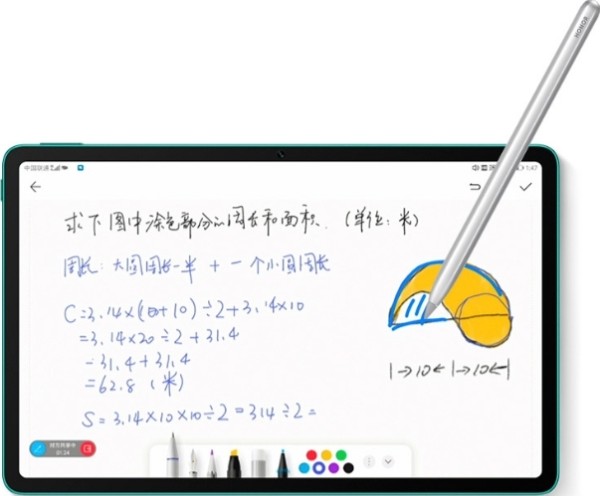 HONOR
中国联通
1:47
求下图中涂色部分的周长和面积. (单位:米)
周长: 大圆周长一半 + 一个小圆周长
C=3.14×(10+10)÷2+3.14×10
=3.14×20÷2+31.4
=31.4+31.4
=62.8 (米)
S=3.14×10×10÷2=314÷2=
|→10←|→10←|
01:24